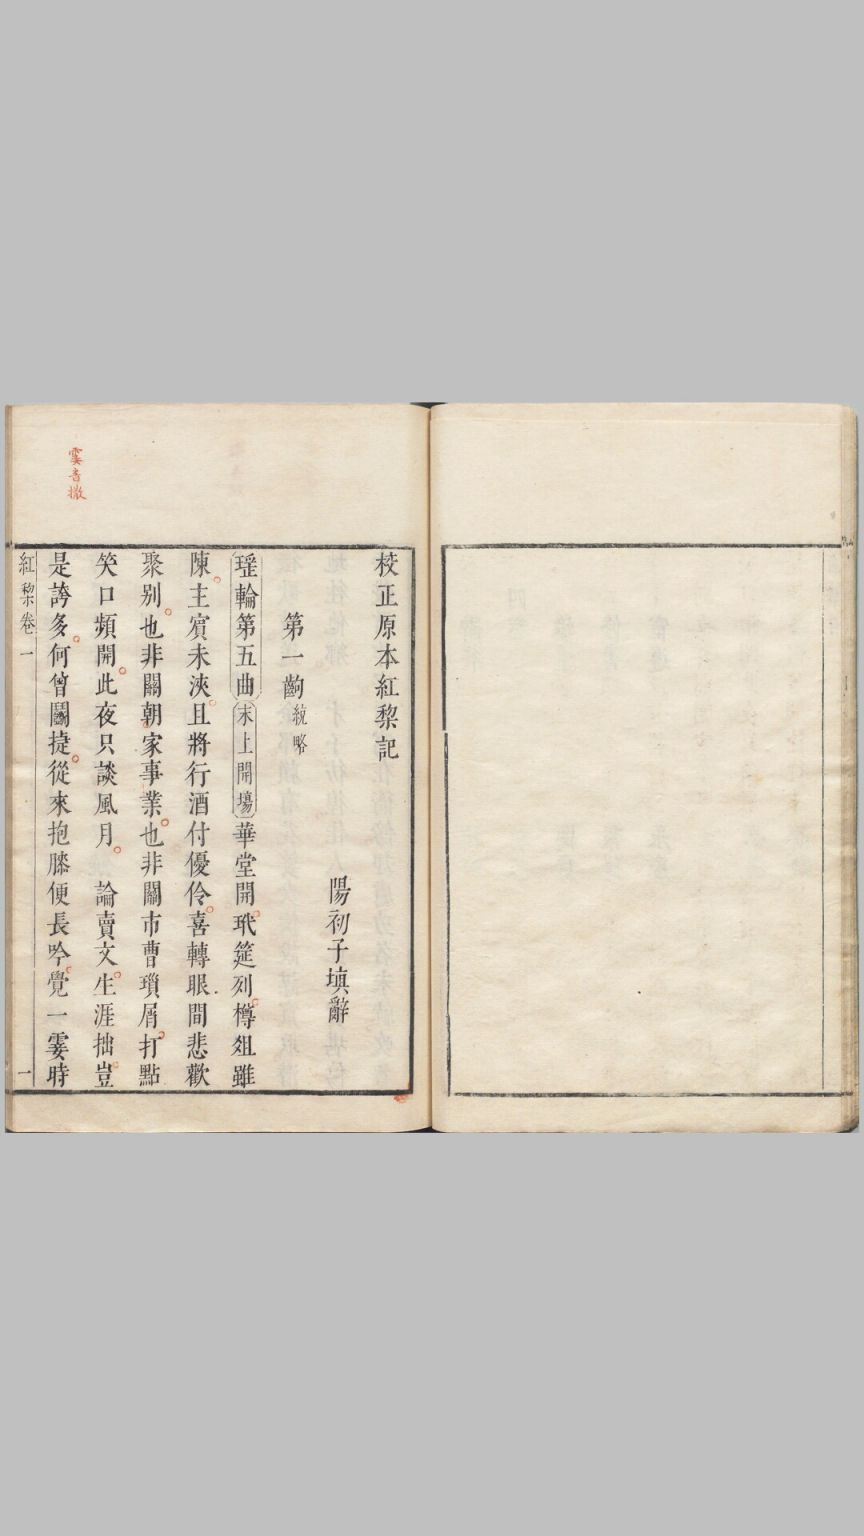 校正原本紅梨記
陽初子填辭
第一齣統略
瑶輪第五曲末上開塲華堂開玳筵列樽俎雖
陳主賓未浹且將行酒付優伶喜轉眼間悲歡
聚别也非關朝家事業也非關市曹瑣屑打點
笑口頻開此夜只談風月 論賣文生涯拙豈
是誇多何曾鬭捷從來抱膝便長吟覺一霎時
紅棃卷一 一
霎音撒